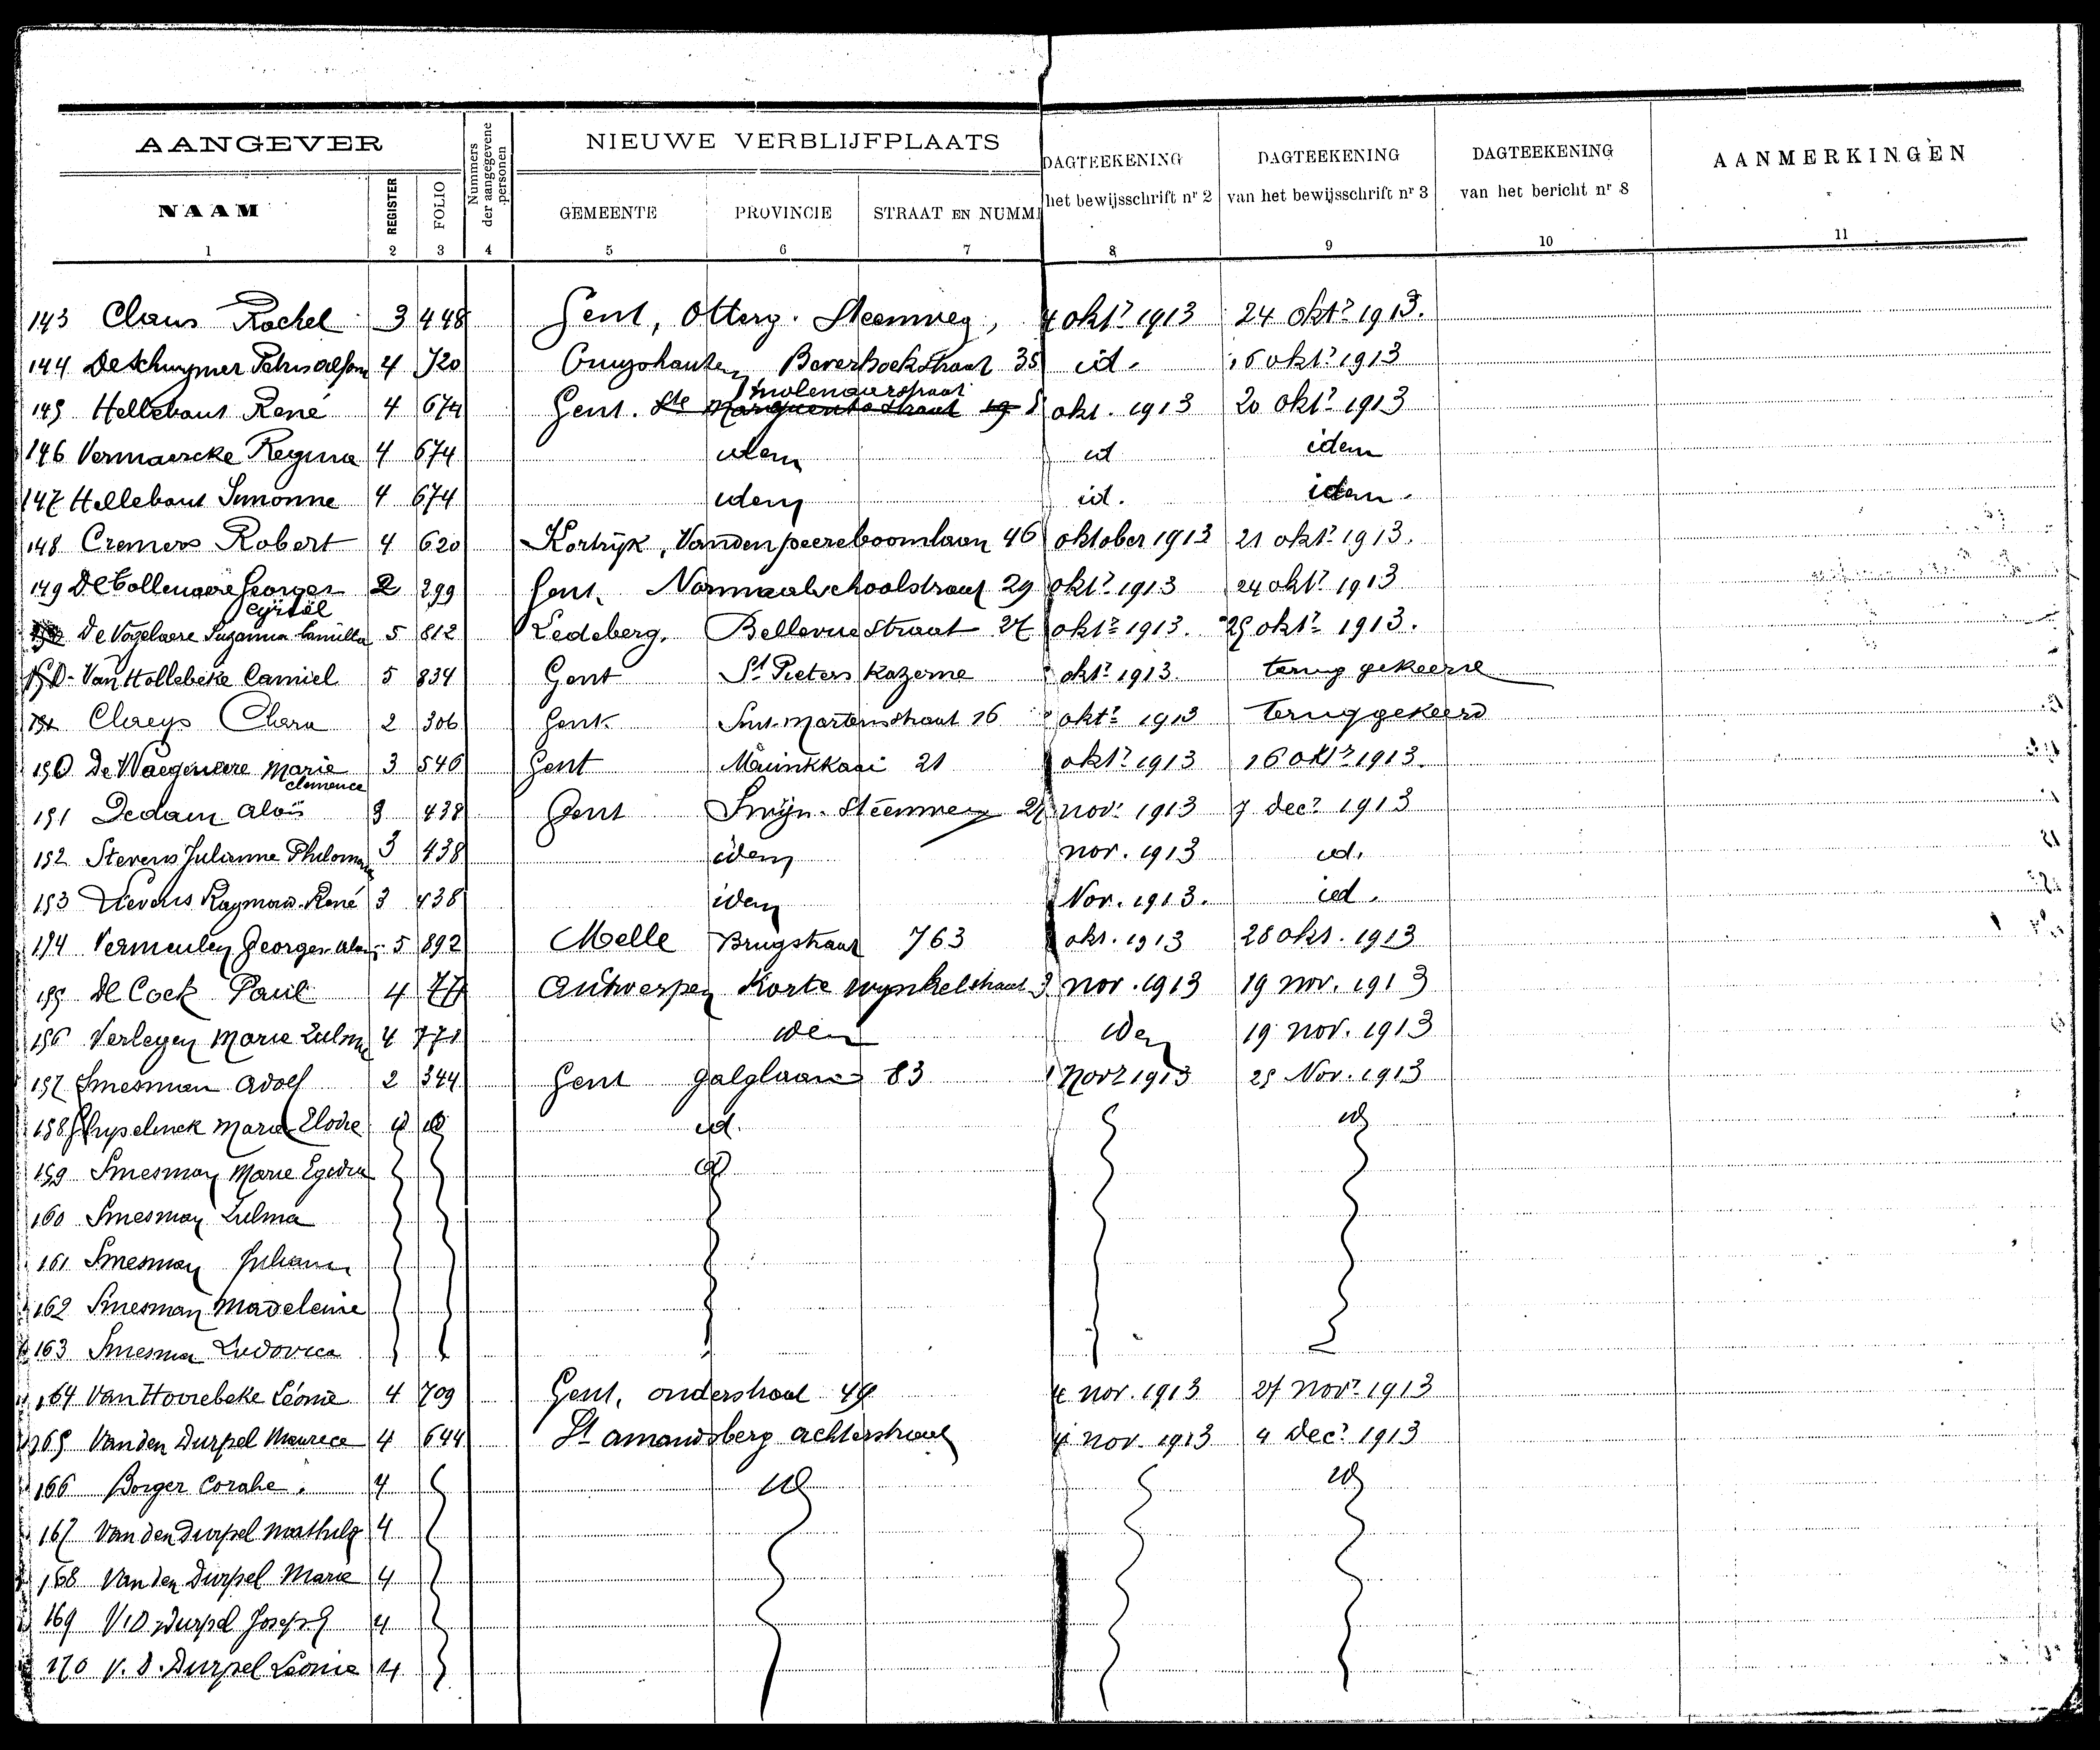 AANGEVER
Nummers der aangegevene personen
NIEUWE VERBLIJFPLAATS
DAGTEEKENING
het bewijsschrift nr 2
DAGTEEKENING
van het bewijsschrift nr 3
DAGTEEKENING
van het bericht nr 8
AANMERKINGEN
NAAM REGISTER FOLIO GEMEENTE PROVINCIE STRAAT EN NUMM
1 2 3 4 5 6 7 8 9 10 11
143 Claus Rachel 3 448 Gent, Otterg. Steenweg, 4 okt? 1913 24 okt? 1913.
144 De Schuymer Petrus 4 720 Cruyshautem Beverhoekstraat 35 id. 16 okt? 1913
Molenaarstraat
145 Hellebaut René 4 674 Gent. Ste Margueritestraat 19 okt. 1913 20 okt? 1913
146 Vermaercke Regina 4 674 idem id idem
147 Hellebaut Simonne 4 674 idem id. idem.
148 Cremers Robert 4 620 Kortrijk, Vandenpeereboomlaan 46 oktober 1913 21 okt? 1913.
149 De Collenaere Georges 2 299 Gent. Normaalschoolstraat 29 okt? 1913 24 okt? 1913
Cyriel
De Vogelaere Suzanna Camilla 5 812 Ledeberg. Bellevue straat 27 okt? 1913. 25 okt? 1913.
Van Hollebeke Camiel 5 834 Gent St Pieters Kazerne okt? 1913. terug gekeerd
Claeys Clara 2 306 Gent. Sint-Martensstraat 16 okt? 1913 teruggekeerd
150 De Waegenaere Marie 3 546 Gent Muinkkaai 21 okt? 1913 16 okt? 1913.
Clemence
151 Dedain Aloïs 3 438 Gent Swijn. Steenweg nov. 1913 7 dec? 1913
152 Stevens Julianne Philomena 3 438 idem nov. 1913 id.
153 Stevens Raymond René 3 438 idem Nov. 1913. id.
154 Vermeulen Georges 5 892 Melle Brugstraat 763 okt. 1913 28 okt. 1913
155 De Cock Paul 4 77 Antwerpen Korte Wynkelstraat 3 nov. 1913 19 nov. 1913
156 Verleyen Marie Zulma 4 771 idem idem 19 nov. 1913
157 Smesman Adolf 2 344 Gent galglaan 83 Nov? 1913 25 Nov. 1913
158 Ghyselinck Maria Elodie id id id. id
159 Smesman Marie Egidia id
160 Smesman Zulma
161 Smesman Juliana
162 Smesman Madeleine
163 Smesman Ludovica
164 Van Hoorebeke Léonie 4 709 Gent, onderstraat 49 4 nov. 1913 27 nov? 1913
165 Van den Durpel Maurice 4 644 St Amandsberg achterstraat 4 nov. 1913 4 dec? 1913
166 Borger Coralie. 4 id id
167 Van den Durpel Mathilde 4
168 Van den Durpel Marie 4
169 V. D. Durpel Joseph 4
170 V. D. Durpel Léonie 4